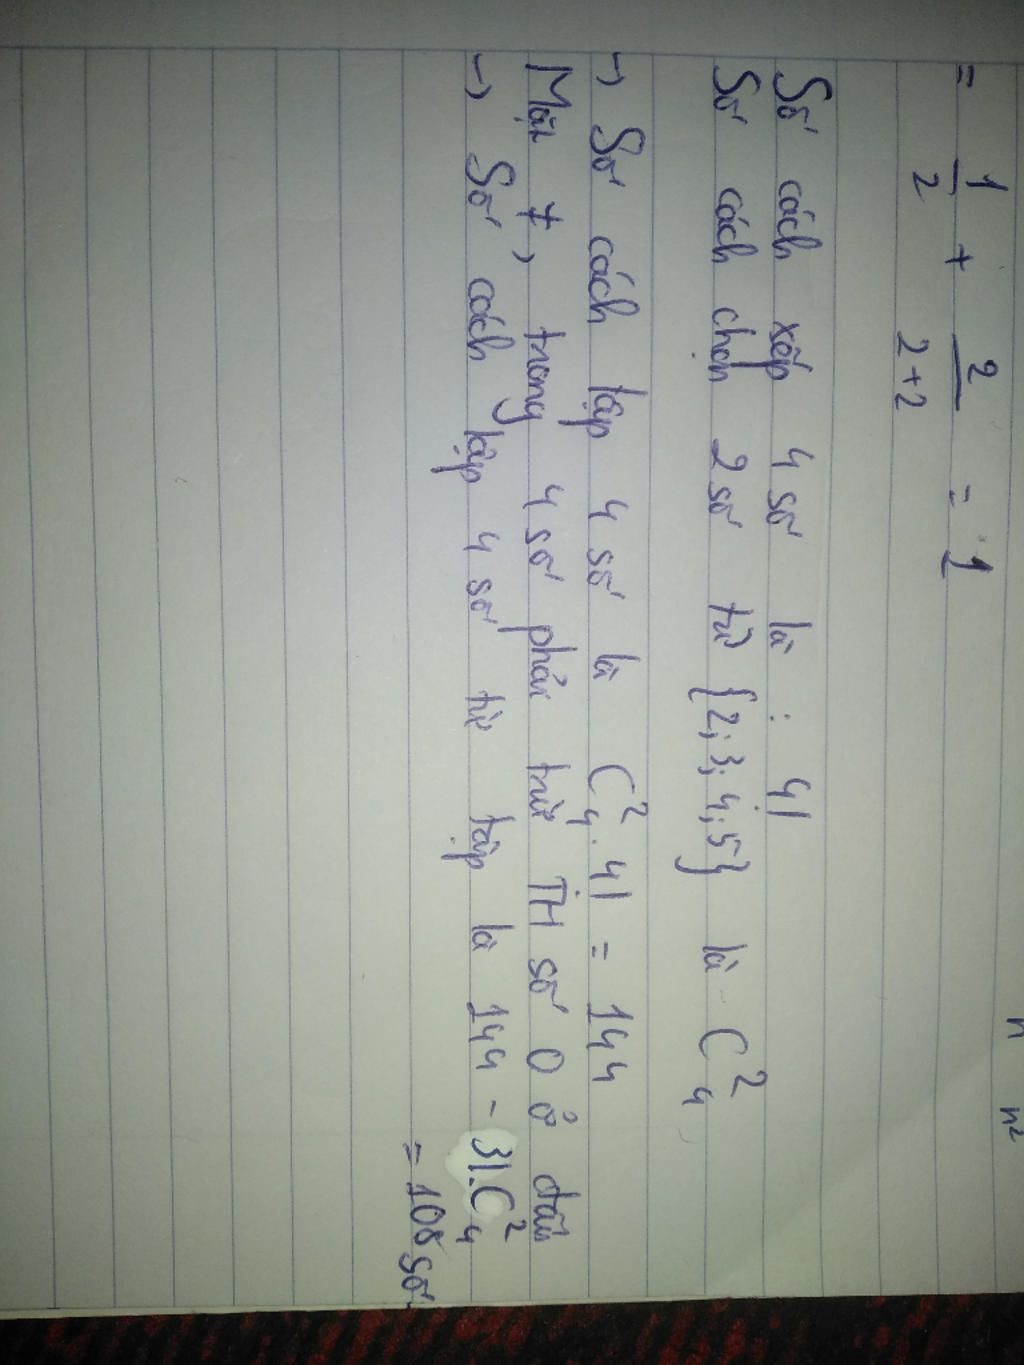 n n²
= 1/2 + 2/2+2 = 1
Số cách xếp 4 số là : 4!
Số cách chọn 2 số từ {2; 3; 4; 5} là C²₄
→ Số cách lập 4 số là C²₄ . 4! = 144
Mặt ≠, trong 4 số phải trừ TH số 0 ở đầu
→ Số cách lập 4 số từ tập là 144 - 3!.C²₄
= 108 số.